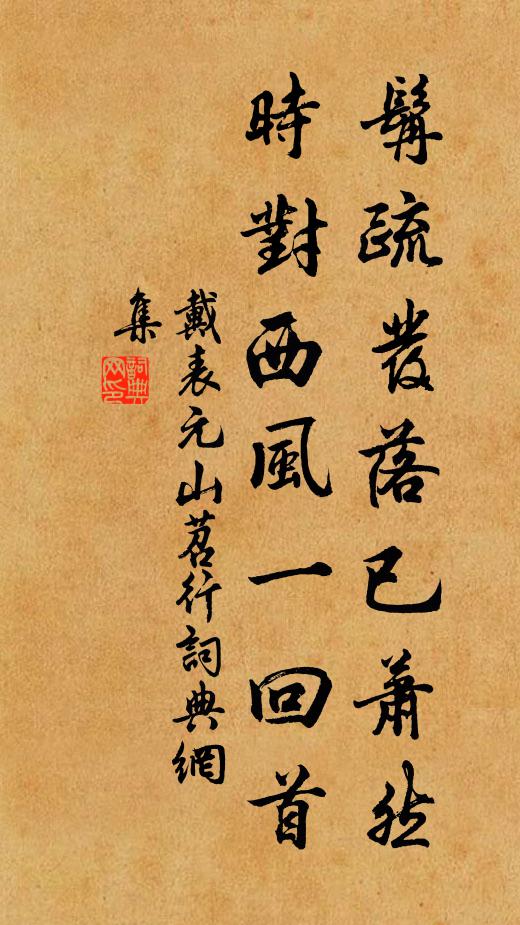 髯疏發落已蕭然
時對西風一回首
戴表元山茗行詞典網
集
詞典网印